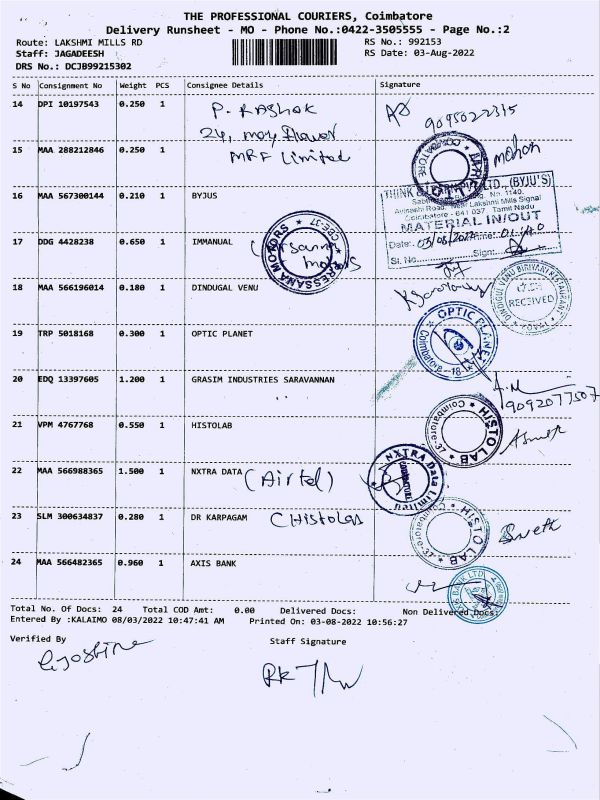 THE PROFESSIONAL COURIERS, Coimbatore
Delivery Runsheet - MO - Phone No.:0422-3505555 - Page No.:2
Route: LAKSHMI MILLS RD
RS No.: 992153
Staff: JAGADEESH
RS Date: 03-Aug-2022
DRS No.: DCJB99215302
S No Consignment No Weight PCS Consignee Details Signature
14 DPI 10197543 0.250 1 P. RAJHOK
9095022315
15 MAA 288212846 0.250 1 MRF Limited
mohan
16 MAA 567300144 0.210 1 BYJUS
THINK & LTD., (BYJU'S)
No. 1140,
Avinashi Road, Near Lakshmi Mills Signal
Coimbatore - 641 037 Tamil Nadu
MATERIAL IN/OUT
Date: 03/08/2022 Time: 01:40
Sl. No. Sign:
17 DDG 4428238 0.650 1 IMMANUAL
RESSANA MOTORS CBE-37
18 MAA 566196014 0.180 1 DINDUGAL VENU
DINDIGUL VENU BIRIYANI RESTAURANT
RECEIVED
19 TRP 5018168 0.300 1 OPTIC PLANET
OPTIC PLANET Coimbatore - 18
20 EDQ 13397605 1.200 1 GRASIM INDUSTRIES SARAVANNAN
9092077507
21 VPM 4767768 0.550 1 HISTOLAB
HISTO LAB Coimbatore-37
22 MAA 566988365 1.500 1 NXTRA DATA (Airtel)
NXTRA Data Limited
23 SLM 300634837 0.280 1 DR KARPAGAM CHistolab
HISTO LAB Coimbatore-37
Sweth
24 MAA 566482365 0.960 1 AXIS BANK
AXIS BANK LTD
Total No. Of Docs: 24 Total COD Amt: 0.00 Delivered Docs: Non Delivered Docs:
Entered By :KALAIMO 08/03/2022 10:47:41 AM Printed On: 03-08-2022 10:56:27
Verified By
Staff Signature